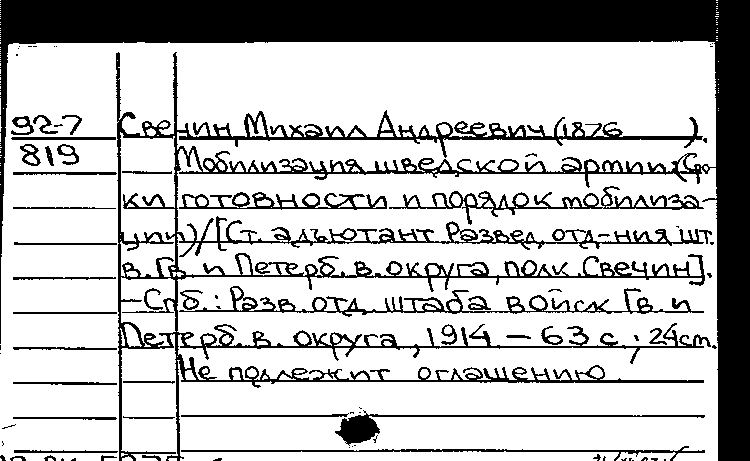 92-7 Свечин, Михаил Андреевич (1876 ).
819 Мобилизация шведской армии: (Сро-
ки готовности и порядок мобилиза-
ции) / [Ст. адъютант Развед. отд-ния шт.
в. Гв. и Петерб. в. округа, полк. Свечин].
– Спб.: Разв. отд. штаба войск Гв. и
Петерб. в. округа, 1914 – 63 с.; 24 см.
Не подлежит оглашению.